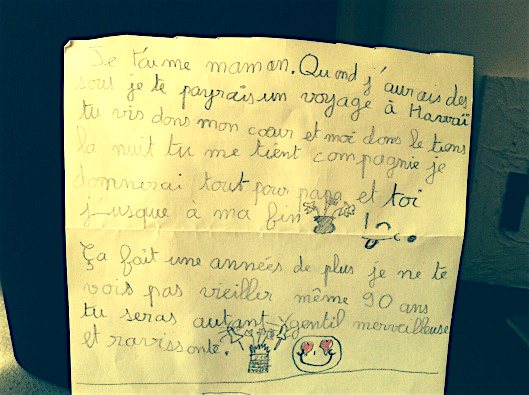 Je t'aime maman. Quand j'aurais des
sous je te payrais un voyage à Hawaï
tu vis dans mon cœur et moi dans le tiens
la nuit tu me tient compagnie je
donnerai tout pour papa et toi
jusque à ma fin
Ça fait une années de plus je ne te
vois pas vieiller même 90 ans
tu seras autant gentil merveilleuse
et ravissante.